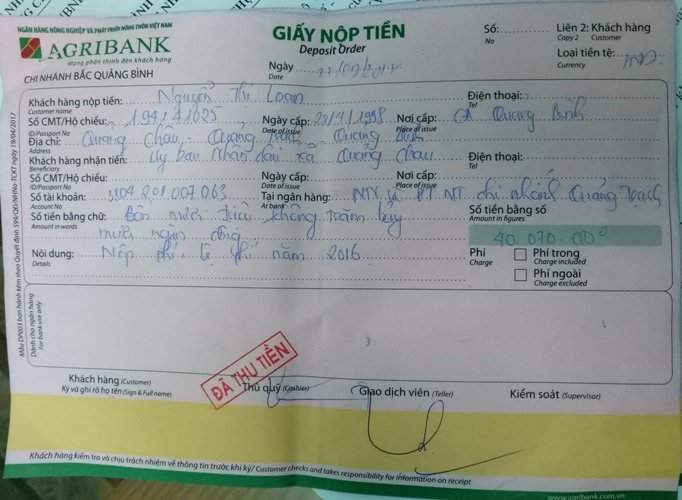 NGÂN HÀNG NÔNG NGHIỆP VÀ PHÁT TRIỂN NÔNG THÔN VIỆT NAM
AGRIBANK
Mang phồn thịnh đến khách hàng
CHI NHÁNH BẮC QUẢNG BÌNH
GIẤY NỘP TIỀN
Deposit Order
Ngày
Date
Số:
No
Liên 2: Khách hàng
Copy 2 Customer
Loại tiền tệ: VND
Currency
Khách hàng nộp tiền: Nguyễn Thị Loan Điện thoại:
Customer name Tel
Số CMT/Hộ chiếu: Ngày cấp: 1998 Nơi cấp: CA Quảng Bình
ID/Passport No Date of issue Place of issue
Địa chỉ: Quảng Châu, Quảng Trạch, Quảng Bình
Address
Khách hàng nhận tiền: Ủy ban Nhân dân xã Quảng Châu Điện thoại:
Beneficiary Tel
Số CMT/Hộ chiếu: Ngày cấp: Nơi cấp:
ID/Passport No Date of issue Place of issue
Số tài khoản: 007.063 Tại ngân hàng: NN & PT NT chi nhánh Quảng Trạch
Account No At bank
Số tiền bằng chữ: Bốn mươi triệu không trăm bảy
Amount in words
mươi ngàn đồng
Số tiền bằng số
Amount in figures
40.070.000
Nội dung: Nộp phí, lệ phí năm 2016
Details
Phí
Charge
Phí trong
Charge included
Phí ngoài
Charge excluded
Dành cho ngân hàng
For bank use only
ĐÃ THU TIỀN
Khách hàng (Customer)
Ký và ghi rõ họ tên (Sign & Full name)
Thủ quỹ (Cashier)
Giao dịch viên (Teller)
Kiểm soát (Supervisor)
Khách hàng kiểm tra và chịu trách nhiệm về thông tin trước khi ký/ Customer checks and takes responsibility for information on receipt
www.agribank.com.vn